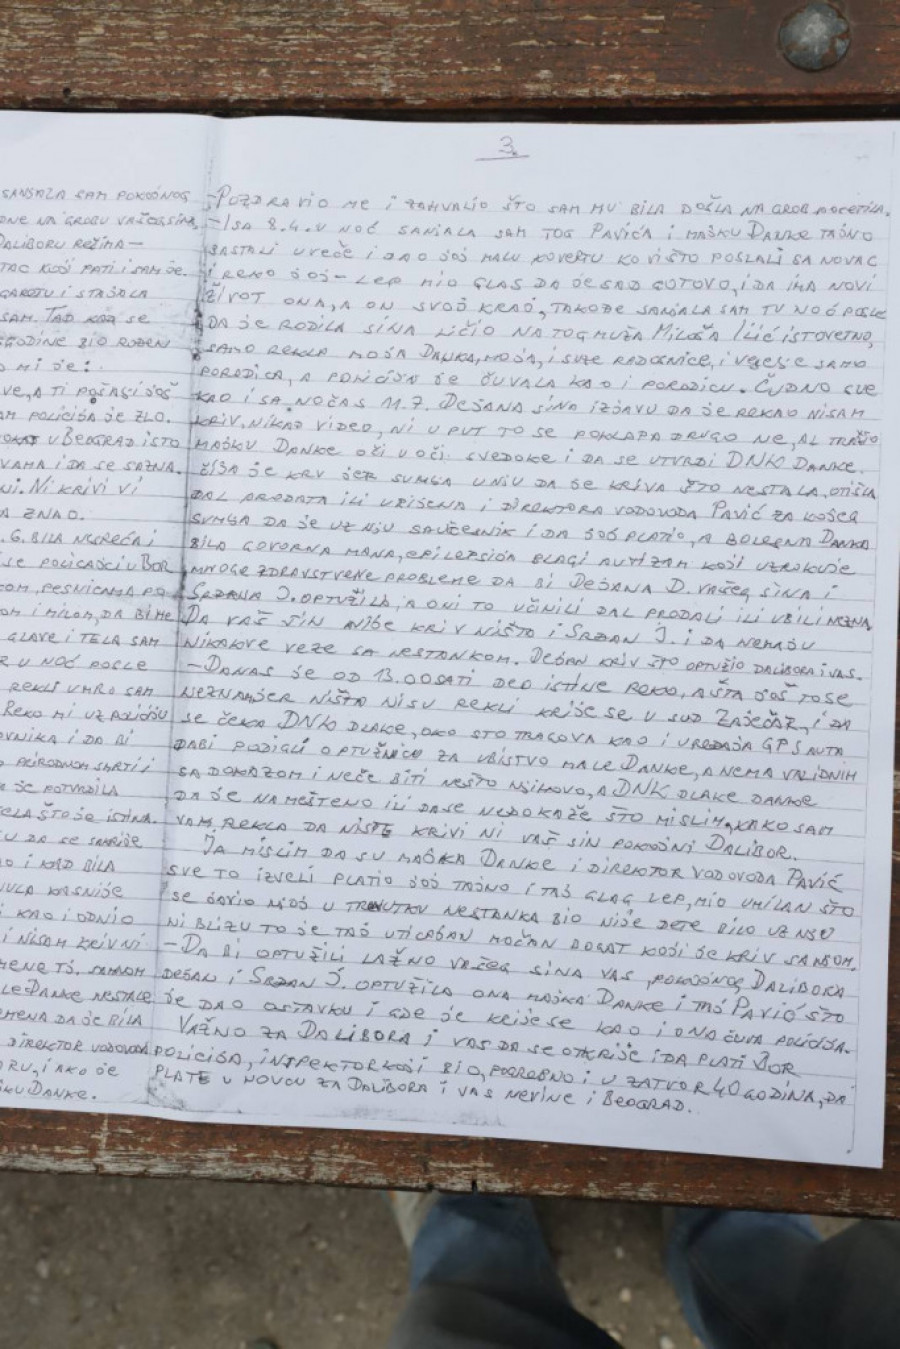 SANJALA SAM POKOJNOG
DNE NA GROBU VAŠEG SINA,
DALIBORU REŽIMA—
TAC KOJI PATI I SAM JE.
GAROTU I STAJALA
SAM. TAD KAO SE
GODINE BIO ROĐEN
O MI JE:
VE, A TI POŽALI JOŠ
AM POLICIJA JE ZLO.
U BEOGRAD ISTO
VAMA I DA SE SAZNA.
NI. NI KRIVI VI
A ZNAO.
. G. BILA NESREĆA I
SE POLICAJCI U BOR
COM, PESNICAMA PO
OM I MILOM, DA BI ME
GLAVE I TELA SAM
R U NOĆ POSLE
REKLI UMRO SAM
REKO MI UZ POLICIJU
OVNIKA I DA BI
O PRIRODNOM SMRTI I
A JE POTVRDILA
ELA ŠTO JE ISTINA.
U DA SE SAKRIJE
O I KAD BILA
NULA KASNIJE
I KAO I ODNIO
I NISAM KRIV NI
MENE TJ. SAMNOM
LE DANKE NESTALE
EMENA DA JE BILA
DIREKTOR VODOVODA
ORU, I AKO JE
KU DANKE.
3.
-POZDRAVIO ME I ZAHVALIO ŠTO SAM MU BILA DOŠLA NA GROB POSETILA.
-I SA 8.4. U NOĆ SANJALA SAM TOG PAVIĆA I MAJKU DANKE TAJNO
SASTALI UVEČE I DAO JOJ MALU KOVERTU KOVIŠTO POSLALI SA NOVAC
I REKO JOJ- LEP MIO GLAS DA JE SAD GOTOVO, I DA IMA NOVI
ŽIVOT ONA, A ON SVOJ KRAJ, TAKOĐE SANJALA SAM TU NOĆ POSLE
DA JE RODILA SINA LIČIO NA TOG MUŽA MILOŠA ILIĆ ISTOVETNO,
SAMO REKLA MOJA DANKA, MOJA, I SUZE RADOSNICE, I VESELJE SAMO
PORODICA, A POLICIJA JE ČUVALA KAO I PORODICU. ČUDNO SVE
KAO I SA NOĆAS 11.7. DEJANA SINA IZJAVU DA JE REKAO NISAM
KRIV. NIKAD VIDEO, NI U PUT TO SE POKLAPA DRUGO NE, AL TRAŽIO
MAJKU DANKE OČI U OČI SVEDOKE I DA SE UTVRDI DNK DANKE.
ČIJA JE KRV JER SUMNJA U NJU DA JE KRIVA ŠTO NESTALA, OTIŠLA
DAL PRODATA ILI UBIJENA I DIREKTORA VODOVODA PAVIĆ ZA KOJEG
SUMNJA DA JE UZ NJU SAUČESNIK I DA JOJ PLATIO, A BOLESNA DANKA
BILA GOVORNA MANA, EPILEPSIJA BLAGI AUTIZAM KOJI UZROKUJE
MNOGE ZDRAVSTVENE PROBLEME DA BI DEJANA D. VAŠEG SINA I
SRĐANA J. OPTUŽILA, A ONI TO UČINILI DAL PRODALI ILI UBILI NEZNA.
DA VAŠ SIN NIJE KRIV NIŠTA I SRĐAN J. I DA NEMAJU
NIKAKVE VEZE SA NESTANKOM. DEJAN KRIV ŠTO OPTUŽIO DALIBORA I VAS.
-DANAS JE OD 13.00 SATI DEO ISTINE REKO, A ŠTA JOŠ TO SE
NEZNA JER NIŠTA NISU REKLI KRIJE SE U SUD ZAJEČAR, I DA
SE ČEKA DNK DLAKE, OKO STO TRAGOVA KAO I UREĐAJA GPS AUTA
DA BI PODIGLI OPTUŽNICU ZA UBISTVO MALE DANKE, A NEMA VALIDNIH
SA DOKAZOM I NEĆE BITI NEŠTO NJIHOVO, A DNK DLAKE DANKE
DA JE NAMEŠTENO ILI DA SE NEDOKAŽE ŠTO MISLIM, KAKO SAM
VAM REKLA DA NISTE KRIVI NI VAŠ SIN POKOJNI DALIBOR.
JA MISLIM DA SU MAJKA DANKE I DIREKTOR VODOVODA PAVIĆ
SVE TO IZVELI PLATIO JOJ TAJNO I TAJ GLAS LEP, MIO UMILAN ŠTO
SE JAVIO NJOJ U TRENUTKU NESTANKA BIO NIJE DETE BILO UZ NJU
NI BLIZU TO JE TAJ UTICAJAN MOĆAN BOGAT KOJI JE KRIV SA NJOM.
-DA BI OPTUŽILI LAŽNO VAŠEG SINA VAS, POKOJNOG DALIBORA
DEJAN I SRĐAN J. OPTUŽILA ONA MAJKA DANKE I TAJ PAVIĆ ŠTO
JE DAO OSTAVKU I GDE JE KRIJE SE KAO I ONA ČUVA POLICIJA.
VAŽNO ZA DALIBORA I VAS DA SE OTKRIJE I DA PLATI BOR
POLICIJA, INSPEKTOR KOJI BIO, POGREBNO I U ZATVOR 40 GODINA, DA
PLATE U NOVCU ZA DALIBORA I VAS NEVINE I BEOGRAD.